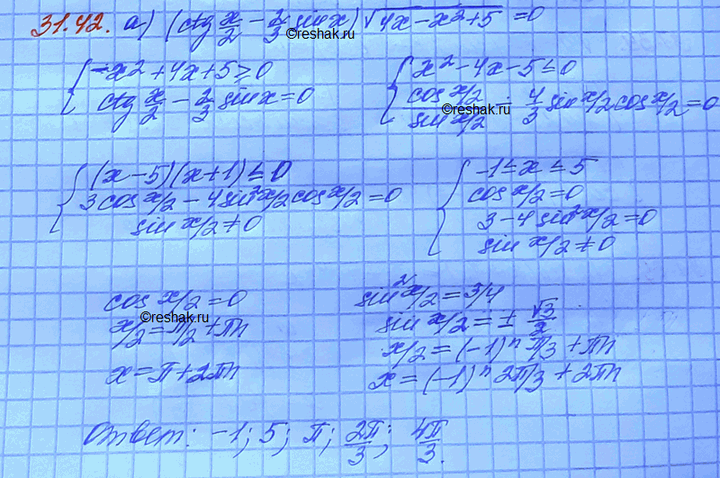 31.42. а) (ctg x/2 - 2/3 sin x) √(4x-x²+5) = 0
©reshak.ru
{ -x²+4x+5 ≥ 0
ctg x/2 - 2/3 sin x = 0
{ x²-4x-5 ≤ 0
cos x/2 / sin x/2 - 4/3 sin x/2 cos x/2 = 0
©reshak.ru
{ (x-5)(x+1) ≤ 0
3 cos x/2 - 4 sin² x/2 cos x/2 = 0
sin x/2 ≠ 0
{ -1 ≤ x ≤ 5
cos x/2 = 0
3 - 4 sin² x/2 = 0
sin x/2 ≠ 0
cos x/2 = 0
©reshak.ru
x/2 = π/2 + πn
x = π + 2πn
sin² x/2 = 3/4
sin x/2 = ± √3/2
x/2 = (-1)ⁿ π/3 + πn
x = (-1)ⁿ 2π/3 + 2πn
Ответ: -1; 5; π; 2π/3; 4π/3.